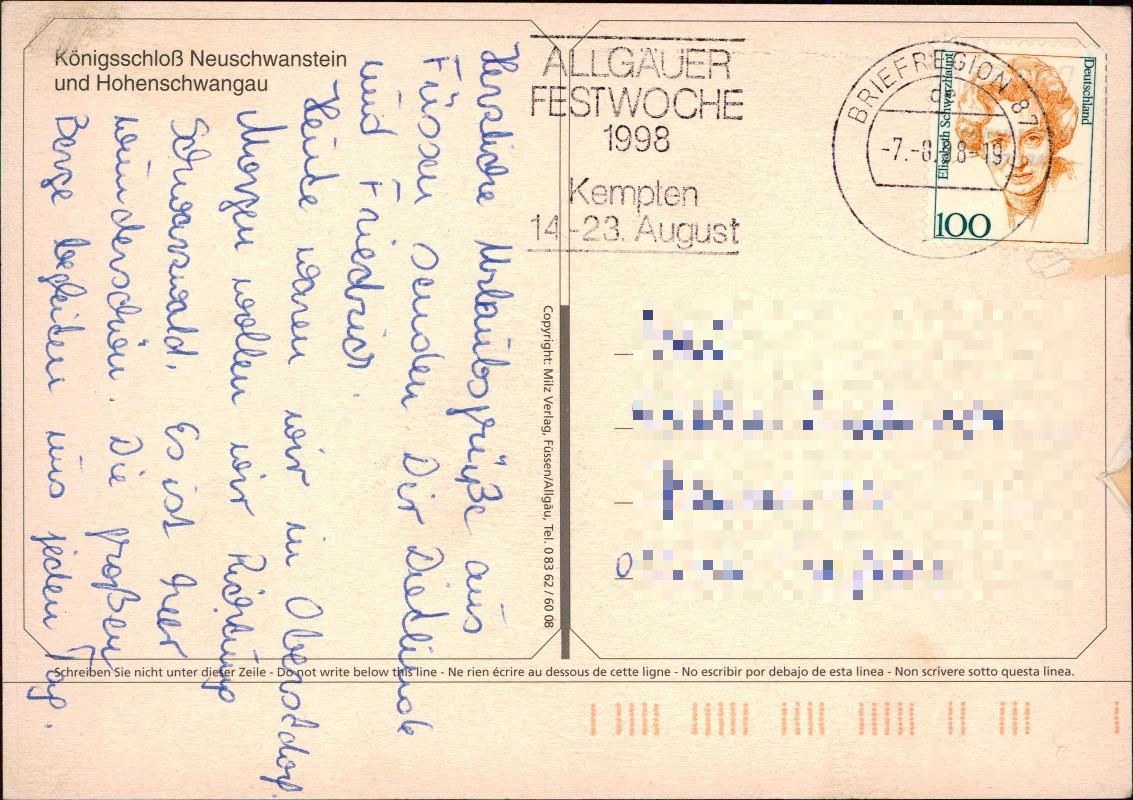 Königsschloß Neuschwanstein
und Hohenschwangau
Herzliche Urlaubsgrüße aus
Füssen senden Dir Dietlinde
und Friedrich.
Heute waren wir in Oberstdorf.
Morgen wollen wir Richtung
Schwarzwald. Es ist hier
wunderschön. Die großen
Berge begleiten uns jeden Tag.
ALLGÄUER
FESTWOCHE
1998
Kempten
14.-23. August
BRIEFREGION 87
Elisabeth Schwarzhaupt
Deutschland
100
Copyright: Milz Verlag, Füssen/Allgäu, Tel. 0 83 62 / 60 08
Schreiben Sie nicht unter dieser Zeile - Do not write below this line - Ne rien écrire au dessous de cette ligne - No escribir por debajo de esta linea - Non scrivere sotto questa linea.